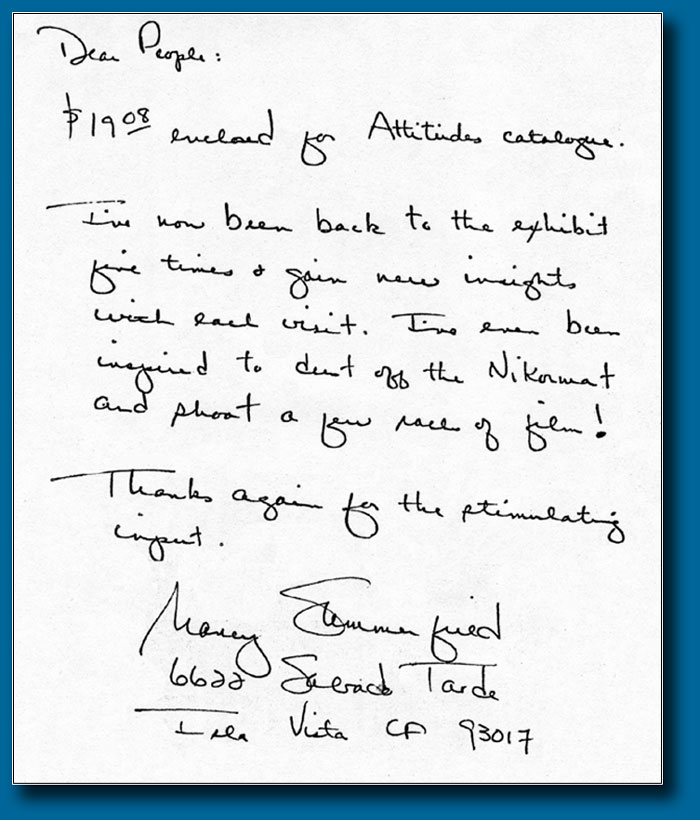 Dear People:
$19.08 enclosed for Attitudes catalogue.
I've now been back to the exhibit
five times & gain new insights
with each visit. I've even been
inspired to dust off the Nikormat
and shoot a few rolls of film!
Thanks again for the stimulating
input.
Nancy
6622 Tarde
Isla Vista CA 93017